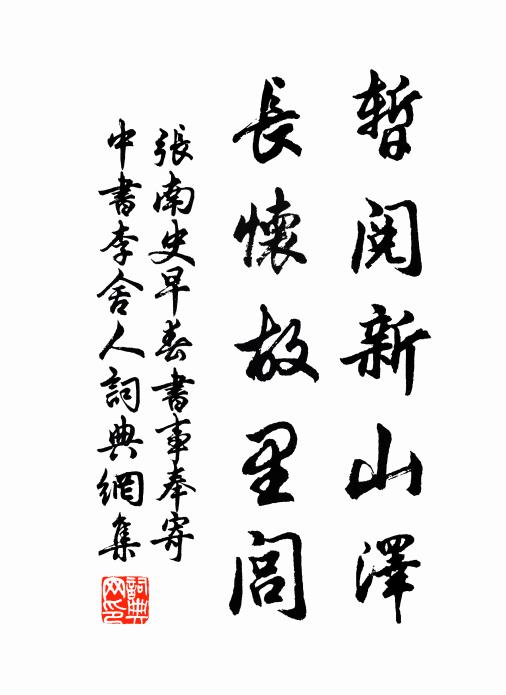 暫閱新山澤
長懷故里閭
張南史早春書事奉寄
中書李舍人詞典網集
詞典網印